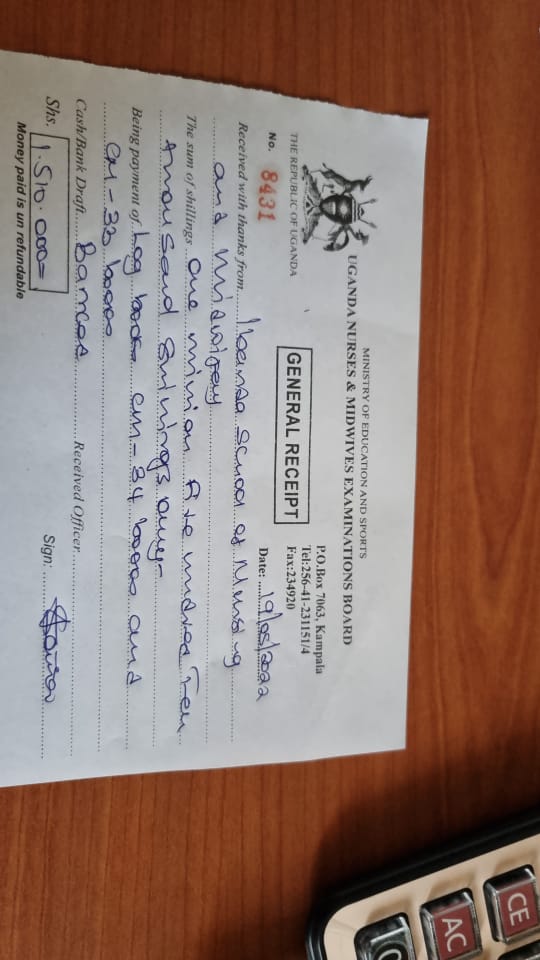 MINISTRY OF EDUCATION AND SPORTS
UGANDA NURSES & MIDWIVES EXAMINATIONS BOARD
THE REPUBLIC OF UGANDA
P.O.Box 7063, Kampala
Tel:256-41-231151/4
Fax:234920
GENERAL RECEIPT
No. 8431
Date: 19/05/2022
Received with thanks from Ibanda School of Nursing
and midwifery
The sum of shillings one million five hundred Ten
thousand shillings only-
Being payment of Log books cm-34 books and
cm-33 books
Cash/Bank Draft Received Officer
Shs. 1.510.000= Sign:
Money paid is un refundable
CE
AC
0